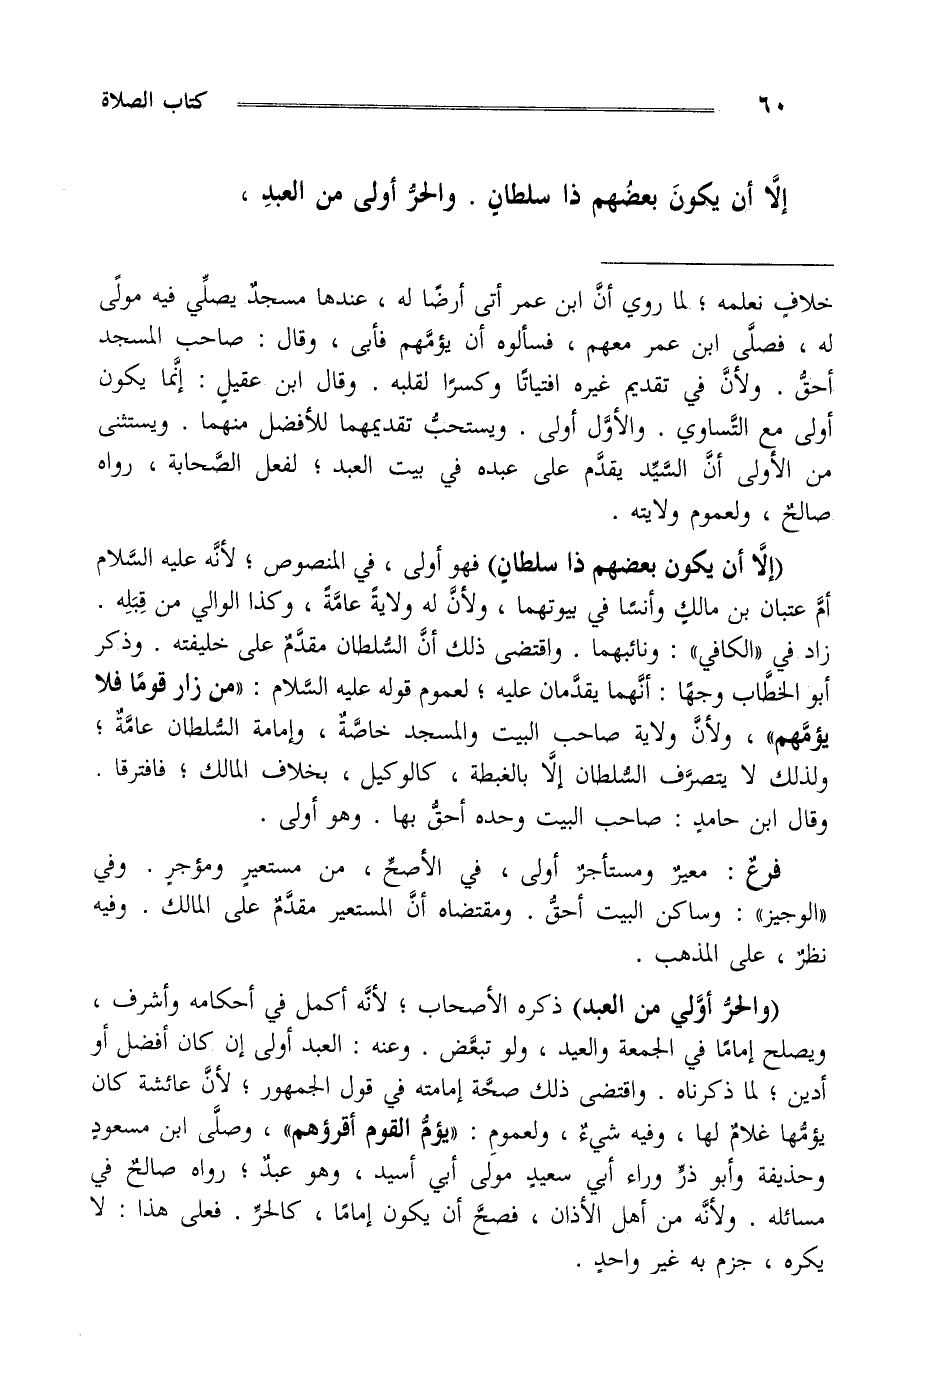 ٦٠ كتاب الصلاة
إلَّا أن يكونَ بعضُهم ذا سلطانٍ . والحرُّ أولى من العبدِ ،
خلافٍ نعلمه ؛ لما روي أنَّ ابن عمر أتى أرضًا له ، عندها مسجدٌ يصلِّي فيه مولًى
له ، فصلَّى ابن عمر معهم ، فسألوه أن يؤمَّهم فأبى ، وقال : صاحب المسجد
أحقُّ . ولأنَّ في تقديم غيره افتياتًا وكسرًا لقلبه . وقال ابن عقيلٍ : إنَّما يكون
أولى مع التَّساوي . والأوَّل أولى . ويستحبُّ تقديمهما للأفضل منهما . ويستثنى
من الأولى أنَّ السَّيِّد يقدَّم على عبده في بيت العبد ؛ لفعل الصَّحابة ، رواه
صالحٌ ، ولعموم ولايته .
(إلَّا أن يكون بعضهم ذا سلطانٍ) فهو أولى ، في المنصوص ؛ لأنَّه عليه السَّلام
أمَّ عتبان بن مالكٍ وأنسًا في بيوتهما ، ولأنَّ له ولايةً عامَّةً ، وكذا الوالي من قِبَلِه .
زاد في «الكافي» : ونائبهما . واقتضى ذلك أنَّ السُّلطان مقدَّمٌ على خليفته . وذكر
أبو الخطَّاب وجهًا : أنَّهما يقدَّمان عليه ؛ لعموم قوله عليه السَّلام : «من زار قومًا فلا
يؤمَّهم» ، ولأنَّ ولاية صاحب البيت والمسجد خاصَّةٌ ، وإمامة السُّلطان عامَّةٌ ؛
ولذلك لا يتصرَّف السُّلطان إلَّا بالغبطة ، كالوكيل ، بخلاف المالك ؛ فافترقا .
وقال ابن حامدٍ : صاحب البيت وحده أحقُّ بها . وهو أولى .
فرعٌ : معيرٌ ومستأجرٌ أولى ، في الأصحِّ ، من مستعيرٍ ومؤجرٍ . وفي
«الوجيز» : وساكن البيت أحقُّ . ومقتضاه أنَّ المستعير مقدَّمٌ على المالك . وفيه
نظرٌ ، على المذهب .
(والحرُّ أوَّلي من العبد) ذكره الأصحاب ؛ لأنَّه أكمل في أحكامه وأشرف ،
ويصلح إمامًا في الجمعة والعيد ، ولو تبعَّض . وعنه : العبد أولى إن كان أفضل أو
أدين ؛ لما ذكرناه . واقتضى ذلك صحَّة إمامته في قول الجمهور ؛ لأنَّ عائشة كان
يؤمُّها غلامٌ لها ، وفيه شيءٌ ، ولعموم : «يؤمُّ القوم أقرؤهم» ، وصلَّى ابن مسعودٍ
وحذيفة وأبو ذرٍّ وراء أبي سعيدٍ مولَى أبي أسيد ، وهو عبدٌ ؛ رواه صالحٌ في
مسائله . ولأنَّه من أهل الأذان ، فصحَّ أن يكون إمامًا ، كالحرِّ . فعلى هذا : لا
يكره ، جزم به غير واحدٍ .